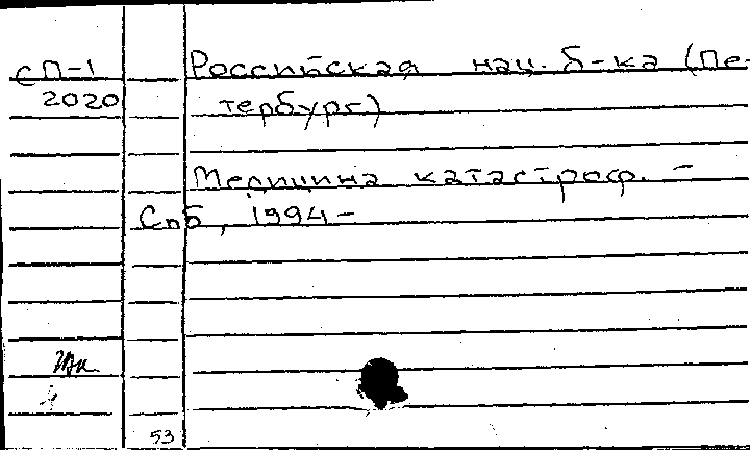 сП-1
2020
Российская нац. б-ка (Пе-
тербург)
Медицина катастроф. –
Спб, 1994 –
53